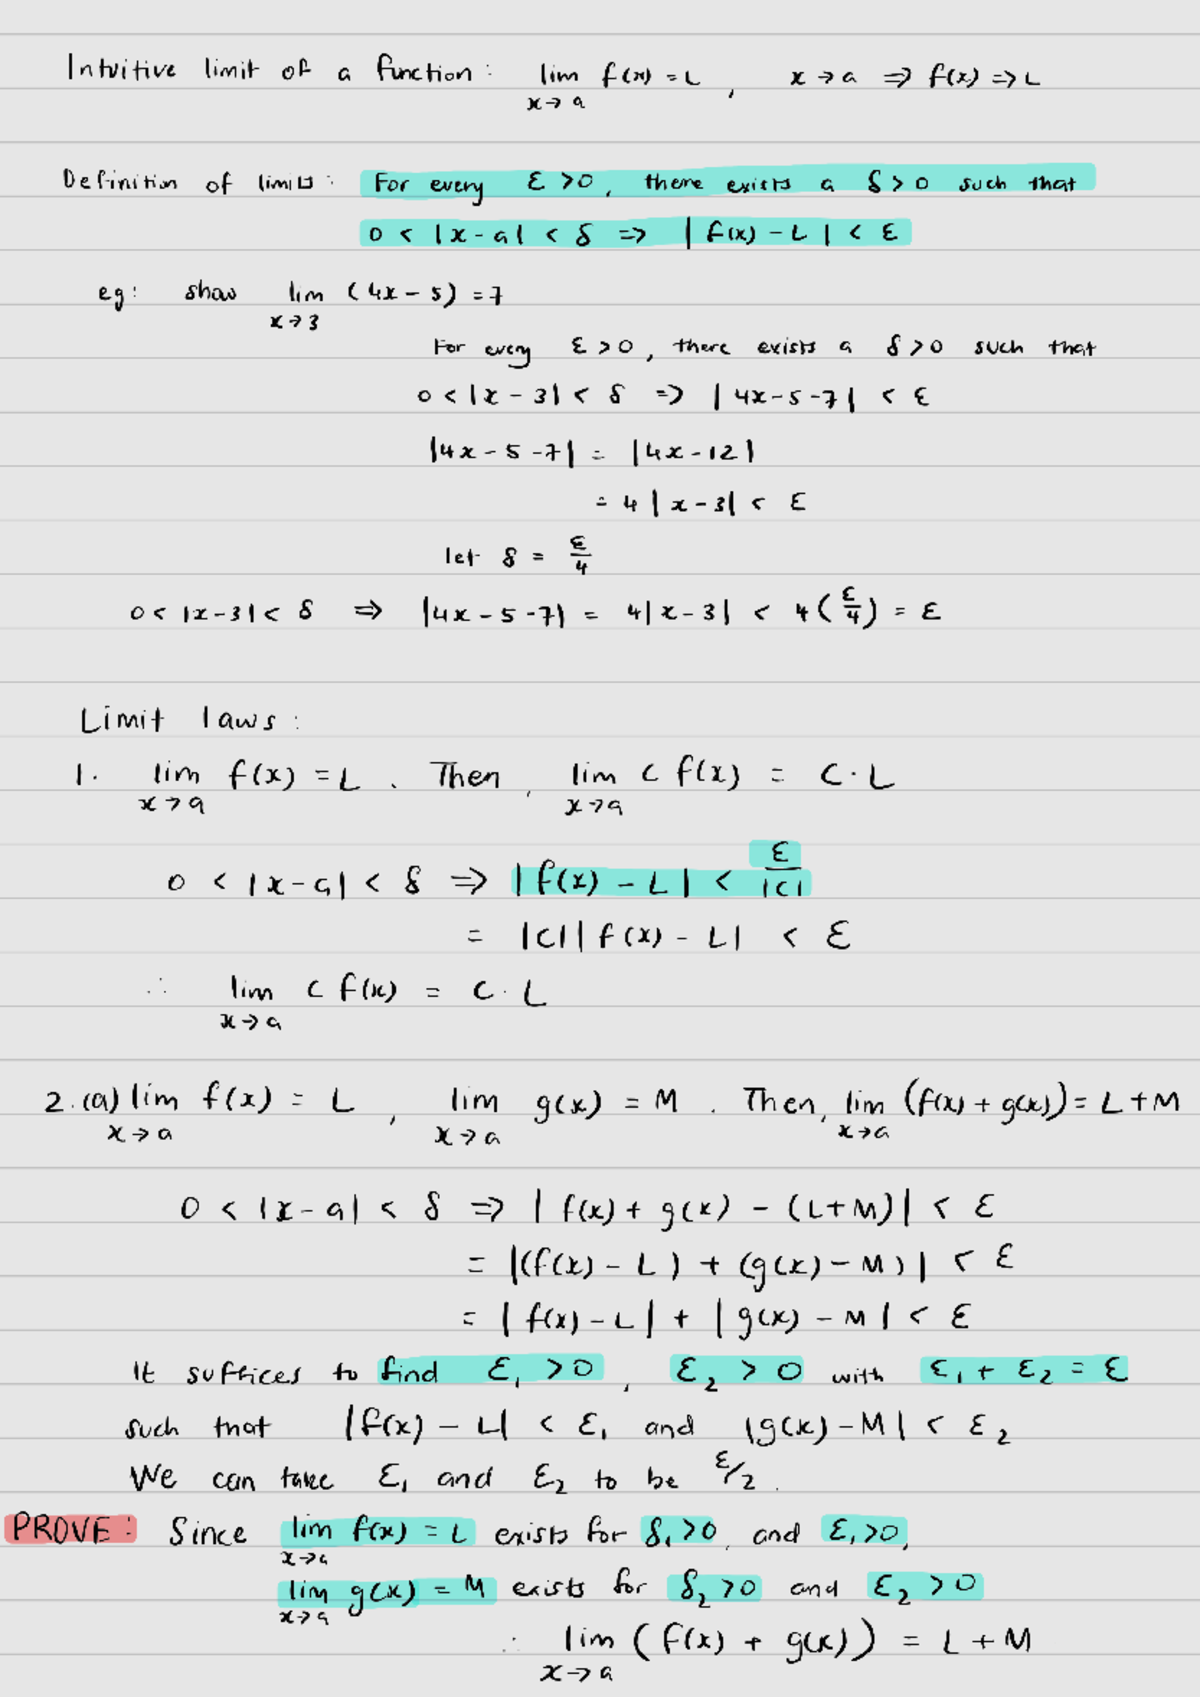 Intuitive limit of a function: lim f(x) = L , x → a ⇒ f(x) ⇒ L
x → a
Definition of limits: For every ε > 0, there exists a δ > 0 such that
0 < |x - a| < δ ⇒ | f(x) - L | < ε
eg: show lim (4x - 5) = 7
x → 3
For every ε > 0, there exists a δ > 0 such that
0 < |x - 3| < δ ⇒ | 4x - 5 - 7 | < ε
|4x - 5 - 7| = |4x - 12|
= 4 | x - 3 | < ε
let δ = ε/4
0 < |x - 3| < δ ⇒ |4x - 5 - 7| = 4|x - 3| < 4(ε/4) = ε
Limit laws:
1. lim f(x) = L . Then, lim c f(x) = C · L
x → a x → a
0 < |x - a| < δ ⇒ | f(x) - L | < ε/|c|
= |c| | f(x) - L | < ε
∴ lim c f(x) = C · L
x → a
2. (a) lim f(x) = L , lim g(x) = M . Then, lim (f(x) + g(x)) = L + M
x → a x → a x → a
0 < |x - a| < δ ⇒ | f(x) + g(x) - (L + M) | < ε
= |(f(x) - L) + (g(x) - M)| < ε
= | f(x) - L | + | g(x) - M | < ε
It suffices to find ε₁ > 0 , ε₂ > 0 with ε₁ + ε₂ = ε
such that |f(x) - L| < ε₁ and |g(x) - M| < ε₂
We can take ε₁ and ε₂ to be ε/2 .
PROVE: Since lim f(x) = L exists for δ₁ > 0, and ε₁ > 0,
x → a
lim g(x) = M exists for δ₂ > 0 and ε₂ > 0
x → a
∴ lim ( f(x) + g(x) ) = L + M
x → a